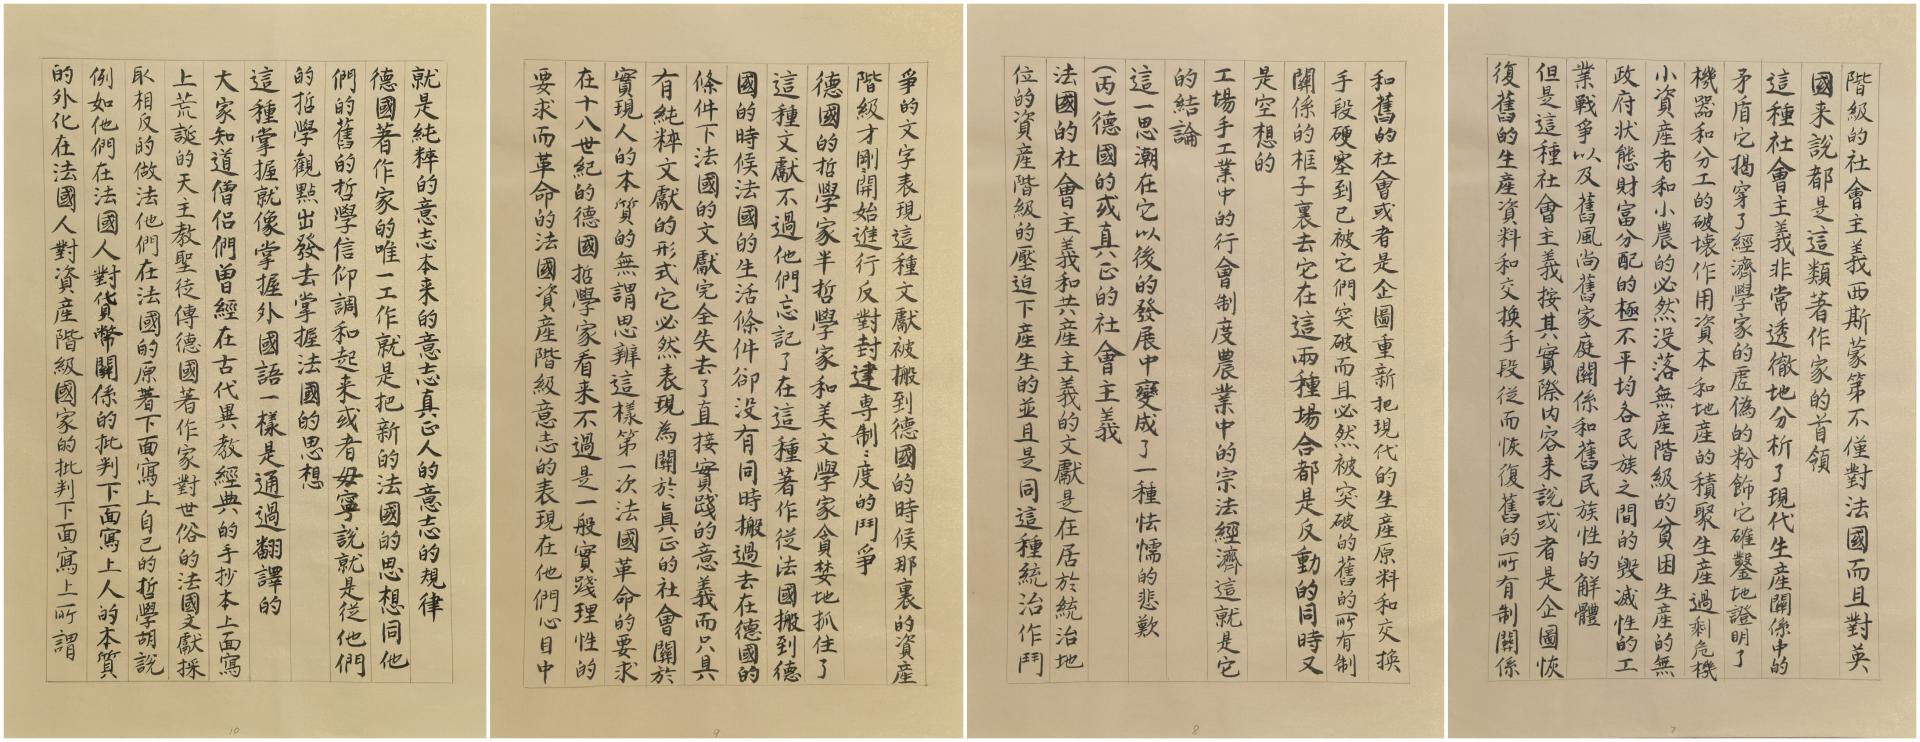 階級的社會主義西斯蒙第不僅對法國而且對英
國来說都是這類著作家的首領
這種社會主義非常透徹地分析了現代生産關係中的
矛盾它揭穿了經濟學家的虛偽的粉飾它確鑿地證明了
機器和分工的破壞作用資本和地産的積聚生産過剩危機
小資産者和小農的必然没落無産階級的貧困生産的無
政府状態財富分配的極不平均各民族之間的毀滅性的工
業戰爭以及舊風尚舊家庭關係和舊民族性的解體
但是這種社會主義按其實際内容来說或者是企圖恢
復舊的生産資料和交換手段從而恢復舊的所有制關係
和舊的社會或者是企圖重新把現代的生産原料和交換
手段硬塞到已被它們突破而且必然被突破的舊的所有制
關係的框子裏去它在這兩種場合都是反動的同時又
是空想的
工場手工業中的行會制度農業中的宗法經濟這就是它
的結論
這一思潮在它以後的發展中變成了一種怯懦的悲歎
(丙)德國的或真正的社會主義
法國的社會主義和共産主義的文獻是在居於統治地
位的資産階級的壓迫下産生的並且是同這種統治作鬥
爭的文字表現這種文獻被搬到德國的時候那裏的資産
階級才剛開始進行反對封建専制〻度的鬥爭
德國的哲學家半哲學家和美文學家貪婪地抓住了
這種文獻不過他們忘記了在這種著作從法國搬到德
國的時候法國的生活條件卻没有同時搬過去在德國的
條件下法國的文獻完全失去了直接實踐的意義而只具
有純粹文獻的形式它必然表現為關於真正的社會關於
實現人的本質的無謂思辦這樣第一次法國革命的要求
在十八世紀的德國哲學家看来不過是一般實踐理性的
要求而革命的法國資産階級意志的表現在他們心目中
就是純粹的意志本来的意志真正人的意志的規律
德國著作家的唯一工作就是把新的法國的思想同他
們的舊的哲學信仰調和起来或者毋寧說就是從他們
的哲學觀點出發去掌握法國的思想
這種掌握就像掌握外國語一樣是通過翻譯的
大家知道僧侣們曾經在古代異教經典的手抄本上面寫
上荒誕的天主教聖徒傳德國著作家對世俗的法國文獻採
取相反的做法他們在法國的原著下面寫上自己的哲學胡說
例如他們在法國人對貨幣關係的批判下面寫上人的本質
的外化在法國人對資産階級國家的批判下面寫上所謂
7
8
9
10